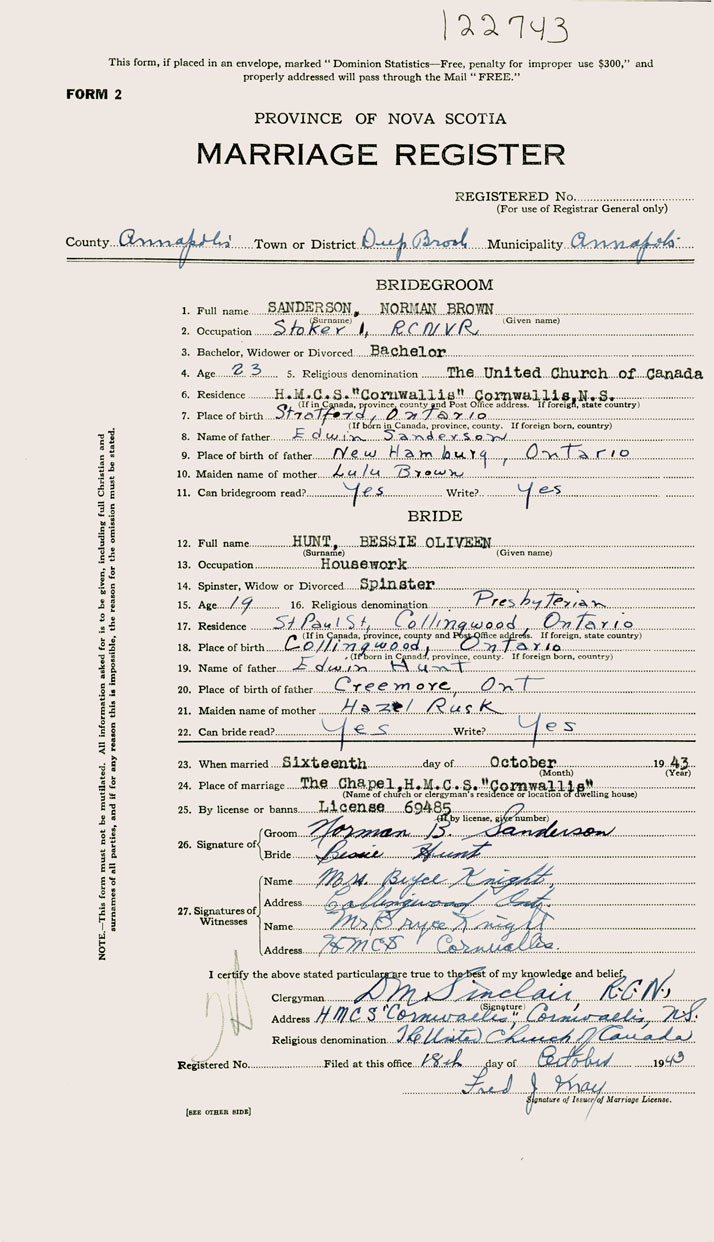 122743
This form, if placed in an envelope, marked "Dominion Statistics—Free, penalty for improper use $300," and
properly addressed will pass through the Mail "FREE."
FORM 2
PROVINCE OF NOVA SCOTIA
MARRIAGE REGISTER
REGISTERED No.
(For use of Registrar General only)
County Annapolis Town or District Deep Brook Municipality Annapolis
BRIDEGROOM
1. Full name SANDERSON, NORMAN BROWN
(Surname) (Given name)
2. Occupation Stoker 1, RCNVR
3. Bachelor, Widower or Divorced Bachelor
4. Age 23 5. Religious denomination The United Church of Canada
6. Residence H.M.C.S."Cornwallis" Cornwallis,N.S.
(If in Canada, province, county and Post Office address. If foreign, state country)
7. Place of birth Stratford, Ontario
(If born in Canada, province, county. If foreign born, country)
8. Name of father Edwin Sanderson
9. Place of birth of father New Hamburg, Ontario
10. Maiden name of mother Lulu Brown
11. Can bridegroom read? Yes Write? Yes
BRIDE
12. Full name HUNT, BESSIE OLIVEEN
(Surname) (Given name)
13. Occupation Housework
14. Spinster, Widow or Divorced Spinster
15. Age 19 16. Religious denomination Presbyterian
17. Residence St Paul St, Collingwood, Ontario
(If in Canada, province, county and Post Office address. If foreign, state country)
18. Place of birth Collingwood, Ontario
(If born in Canada, province, county. If foreign born, country)
19. Name of father Edwin Hunt
20. Place of birth of father Creemore, Ont
21. Maiden name of mother Hazel Rusk
22. Can bride read? Yes Write? Yes
23. When married Sixteenth day of October 1943
(Month) (Year)
24. Place of marriage The Chapel,H.M.C.S."Cornwallis"
(Name of church or clergyman's residence or location of dwelling house)
25. By license or banns License 69485
(If by license, give number)
26. Signature of
Groom Norman B. Sanderson
Bride Bessie Hunt
27. Signatures of Witnesses
Name Mrs. Bryce Knight,
Address Collingwood Ont.
Name Mr Bryce Knight
Address HMCS Cornwallis.
I certify the above stated particulars are true to the best of my knowledge and belief.
Clergyman DM Sinclair, R.C.N.,
(Signature)
Address HMCS "Cornwallis", Cornwallis, N.S.
Religious denomination The United Church of Canada
Registered No. Filed at this office 18th day of October 1943
Fred J
Signature of Issuer of Marriage License.
[SEE OTHER SIDE]
NOTE.—This form must not be mutilated. All information asked for is to be given, including full Christian and
surnames of all parties, and if for any reason this is impossible, the reason for the omission must be stated.